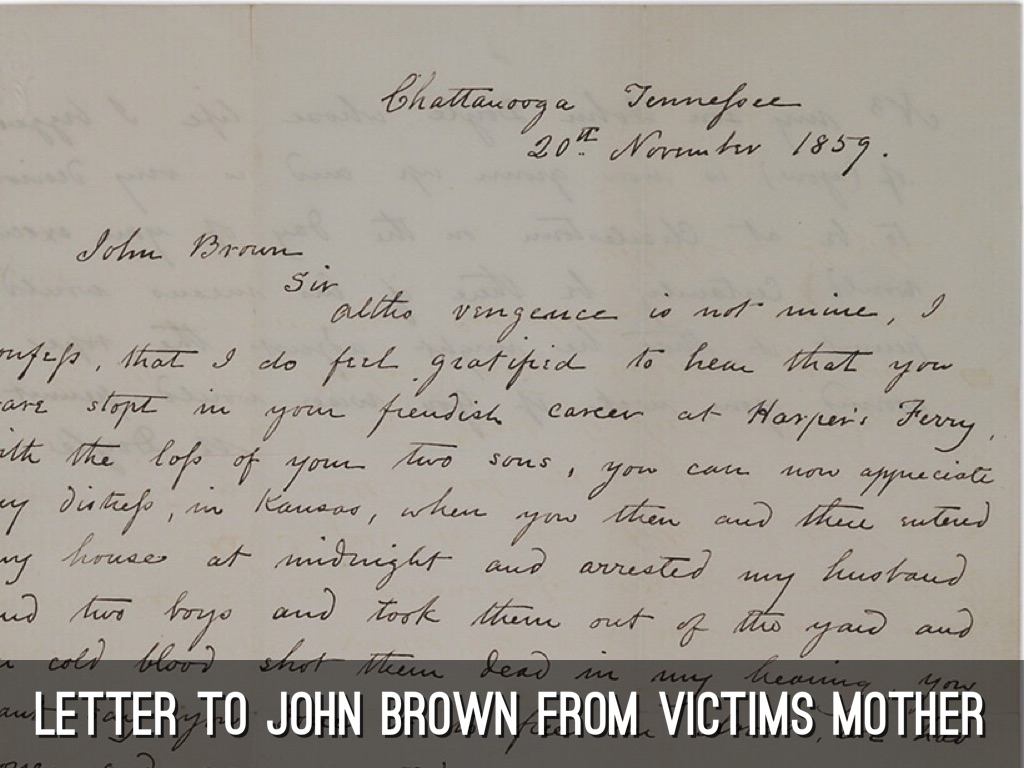 Chattanooga Tennessee
20th November 1859.
John Brown
Sir
altho vengence is not mine, I
onfess, that I do feel gratified to hear that you
are stopt in your fiendish career at Harper's Ferry,
ith the loss of your two sons, you can now appreciate
my distress, in Kansas, when you then and there entered
my house at midnight and arrested my husband
nd two boys and took them out of the yard and
n cold blood shot them dead in my hearing, you
LETTER TO JOHN BROWN FROM VICTIMS MOTHER